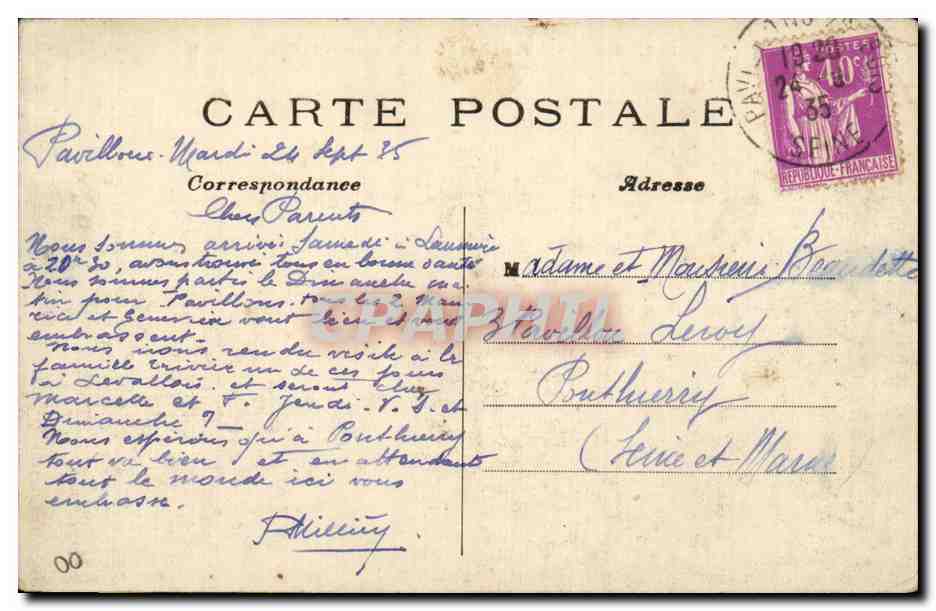 CARTE POSTALE
Pavillons. Mardi 24 Sept 35
Correspondance
Adresse
19 2
24
35
SEINE
POSTES
40c
REPUBLIQUE-FRANÇAISE
Chers Parents
Nous sommes arrivé Samedi à
à 20h 30, avons trouvé tous en bonne santé
Nous sommes partis le Dimanche ma-
tin pour Pavillons. tous les 2 Mau-
rice et vont bien et vous
embrassent.
Nous nous rendu visite à la
famille un de ces jours
à Levallois. et seront chez
Marcelle et F. Jeudi. V. S. et
Dimanche
Nous espérons qu'à Ponthierry
tout va bien et en attendant
tout le monde ici vous
embrasse.
Madame et Monsieur
Leroy
Ponthierry
(Seine et Marne
CPAPHIL
00